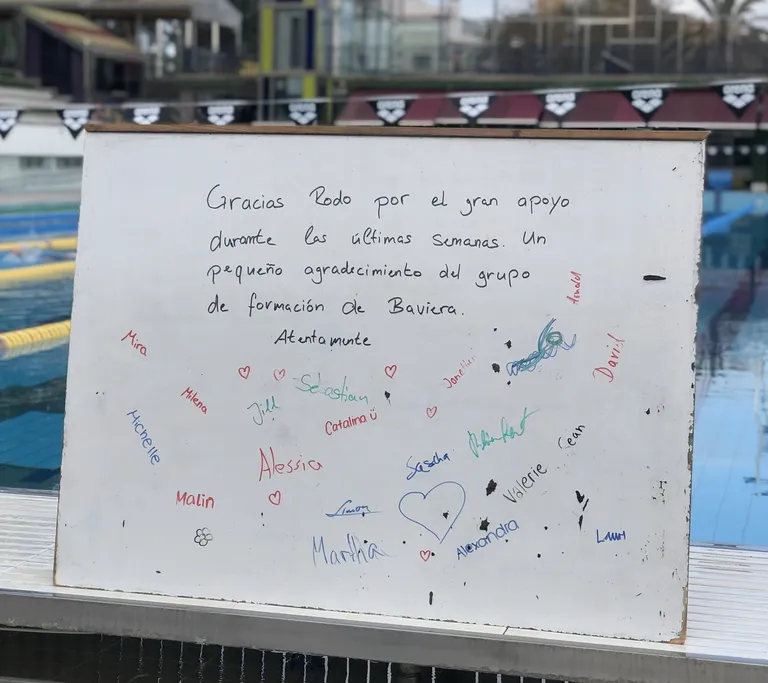 Gracias Rodo por el gran apoyo
durante las últimas semanas. Un
pequeño agradecimiento del grupo
de formación de Baviera.
Atentamente
Mira
Milena
Michelle
Jill
Sebastian
Catalina ü
Jonathan
David
Alessia
Sascha
Valerie
Sean
Malin
Simon
Martha
Alexandra
Lauri